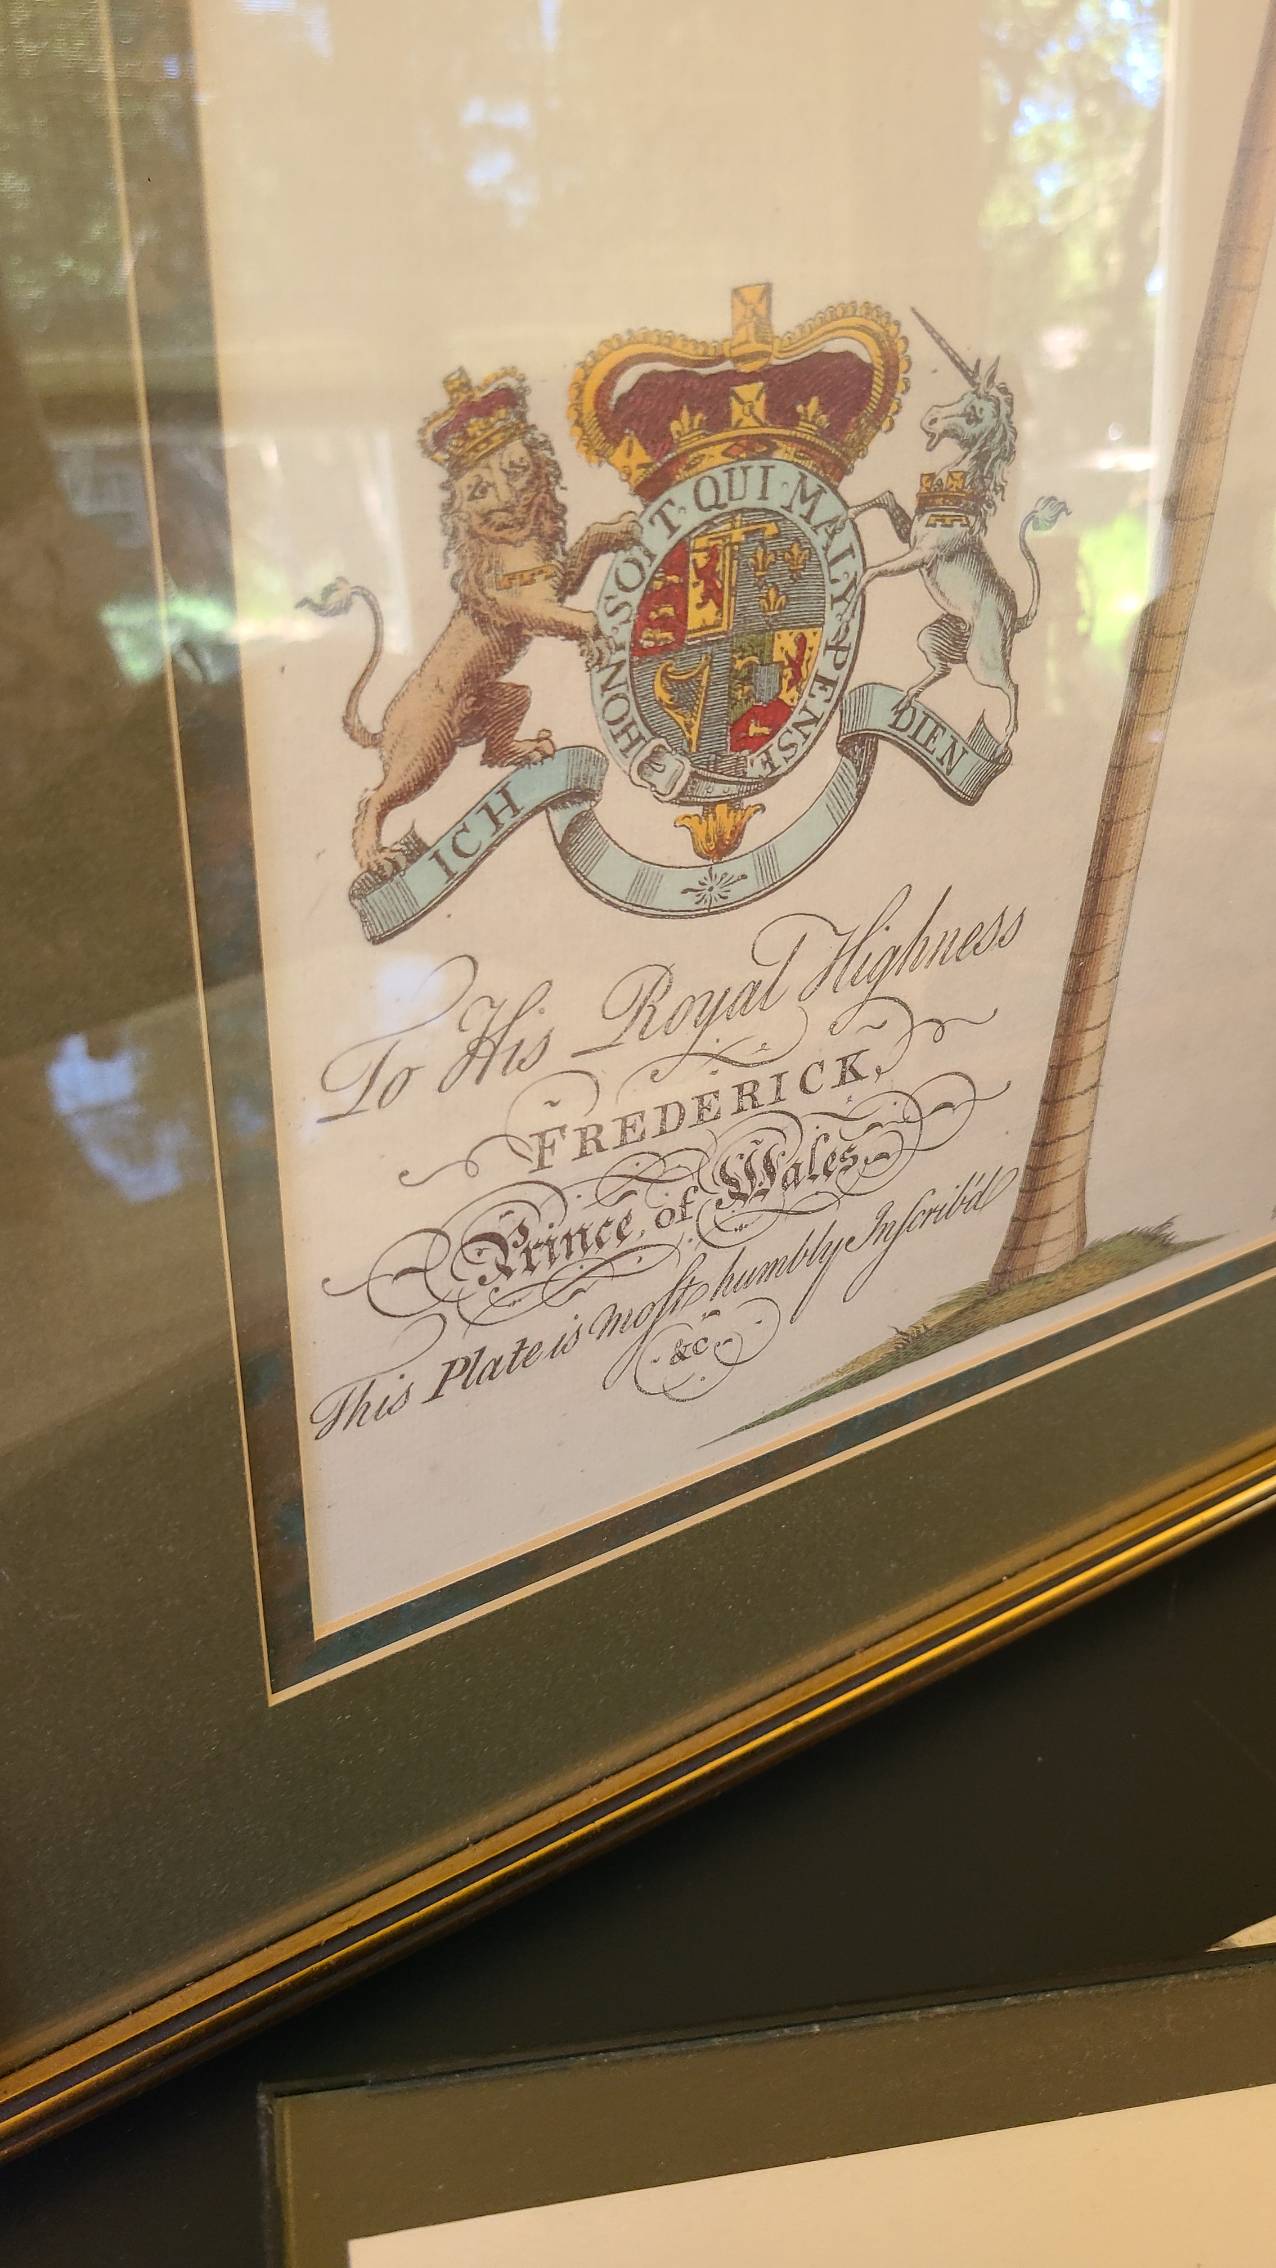 HONI·SOIT·QUI·MAL·Y·PENSE
ICH DIEN
To His Royal Highness
FREDERICK,
Prince of Wales
This Plate is moſt humbly Inſcrib'd
&c